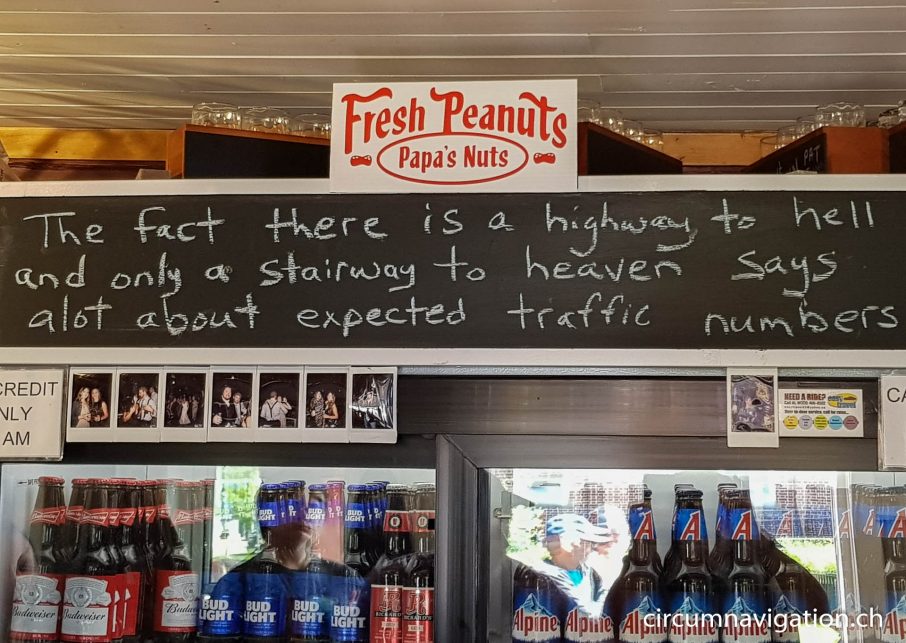 Fresh Peanuts
Papa's Nuts
The fact there is a highway to hell
and only a stairway to heaven says
alot about expected traffic numbers
CREDIT
NLY
AM
NEED A RIDE?
CA
Budweiser
Budweiser
Budw
BUD LIGHT
BUD LIGHT
BUD LIGHT
BUD LIGHT
BUD LIGHT
BUD LIGHT
BUD LIGHT
RICKARD'S
Alpine
Alpine
Alpine
Alpine
Alpine
circumnavigation.ch